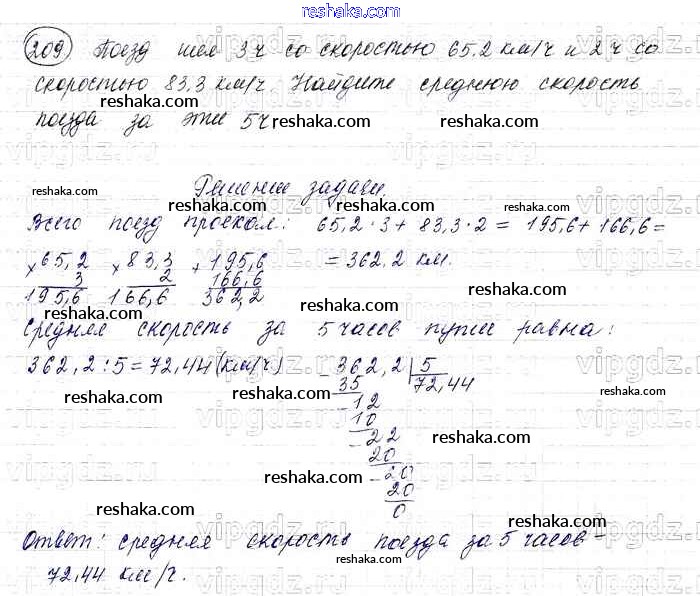 reshaka.com
209 Поезд шел 3 ч со скоростью 65.2 км/ч и 2 ч со
скоростью 83,3 км/ч. Найдите среднюю скорость
reshaka.com reshaka.com
поезда за эти 5ч reshaka.com reshaka.com
Решение задачи.
reshaka.com reshaka.com reshaka.com
Всего поезд проехал: 65,2 · 3 + 83,3 · 2 = 195,6 + 166,6 =
× 65,2 × 83,3 + 195,6 = 362,2 км.
3 2 166,6
195,6 166,6 362,2
reshaka.com reshaka.com reshaka.com
Средняя скорость за 5 часов пути равна:
362,2 : 5 = 72,44 (км/ч) - 362,2 | 5
reshaka.com 35 72,44 reshaka.com
- 12
10
- 22 reshaka.com
20
reshaka.com - 20 reshaka.com
20
reshaka.com 0 reshaka.com
Ответ: средняя скорость поезда за 5 часов -
reshaka.com
72,44 км/ч.
reshaka.com